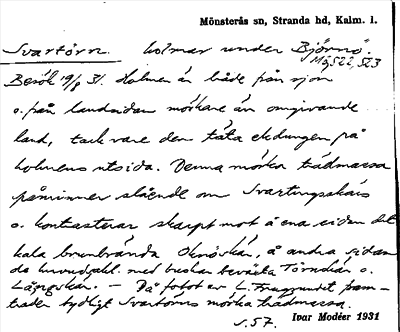 Mönsterås sn, Stranda hd, Kalm. l.
Svartörn. holmar under Björnö.
Mg 522, 523
Besök 19/8 31. Holmen är både från sjön
o. från landsidan mörkare än omgivande
land, tack vare den täta ekdungen på
holmens utsida. Denna mörka trädmassa
påminner slående om Svartingskär
o. kontrasterar skarpt mot å ena sidan det
kala brunbrända Oknöskär, å andra sidan
de huvudsakl. med buskar beväxta Törnskär o.
Långskär. — Då fotot av L. Fraggundet fram-
träder tydligt Svartörns mörka trädmassa.
Ivar Modéer 1931
s. 57.